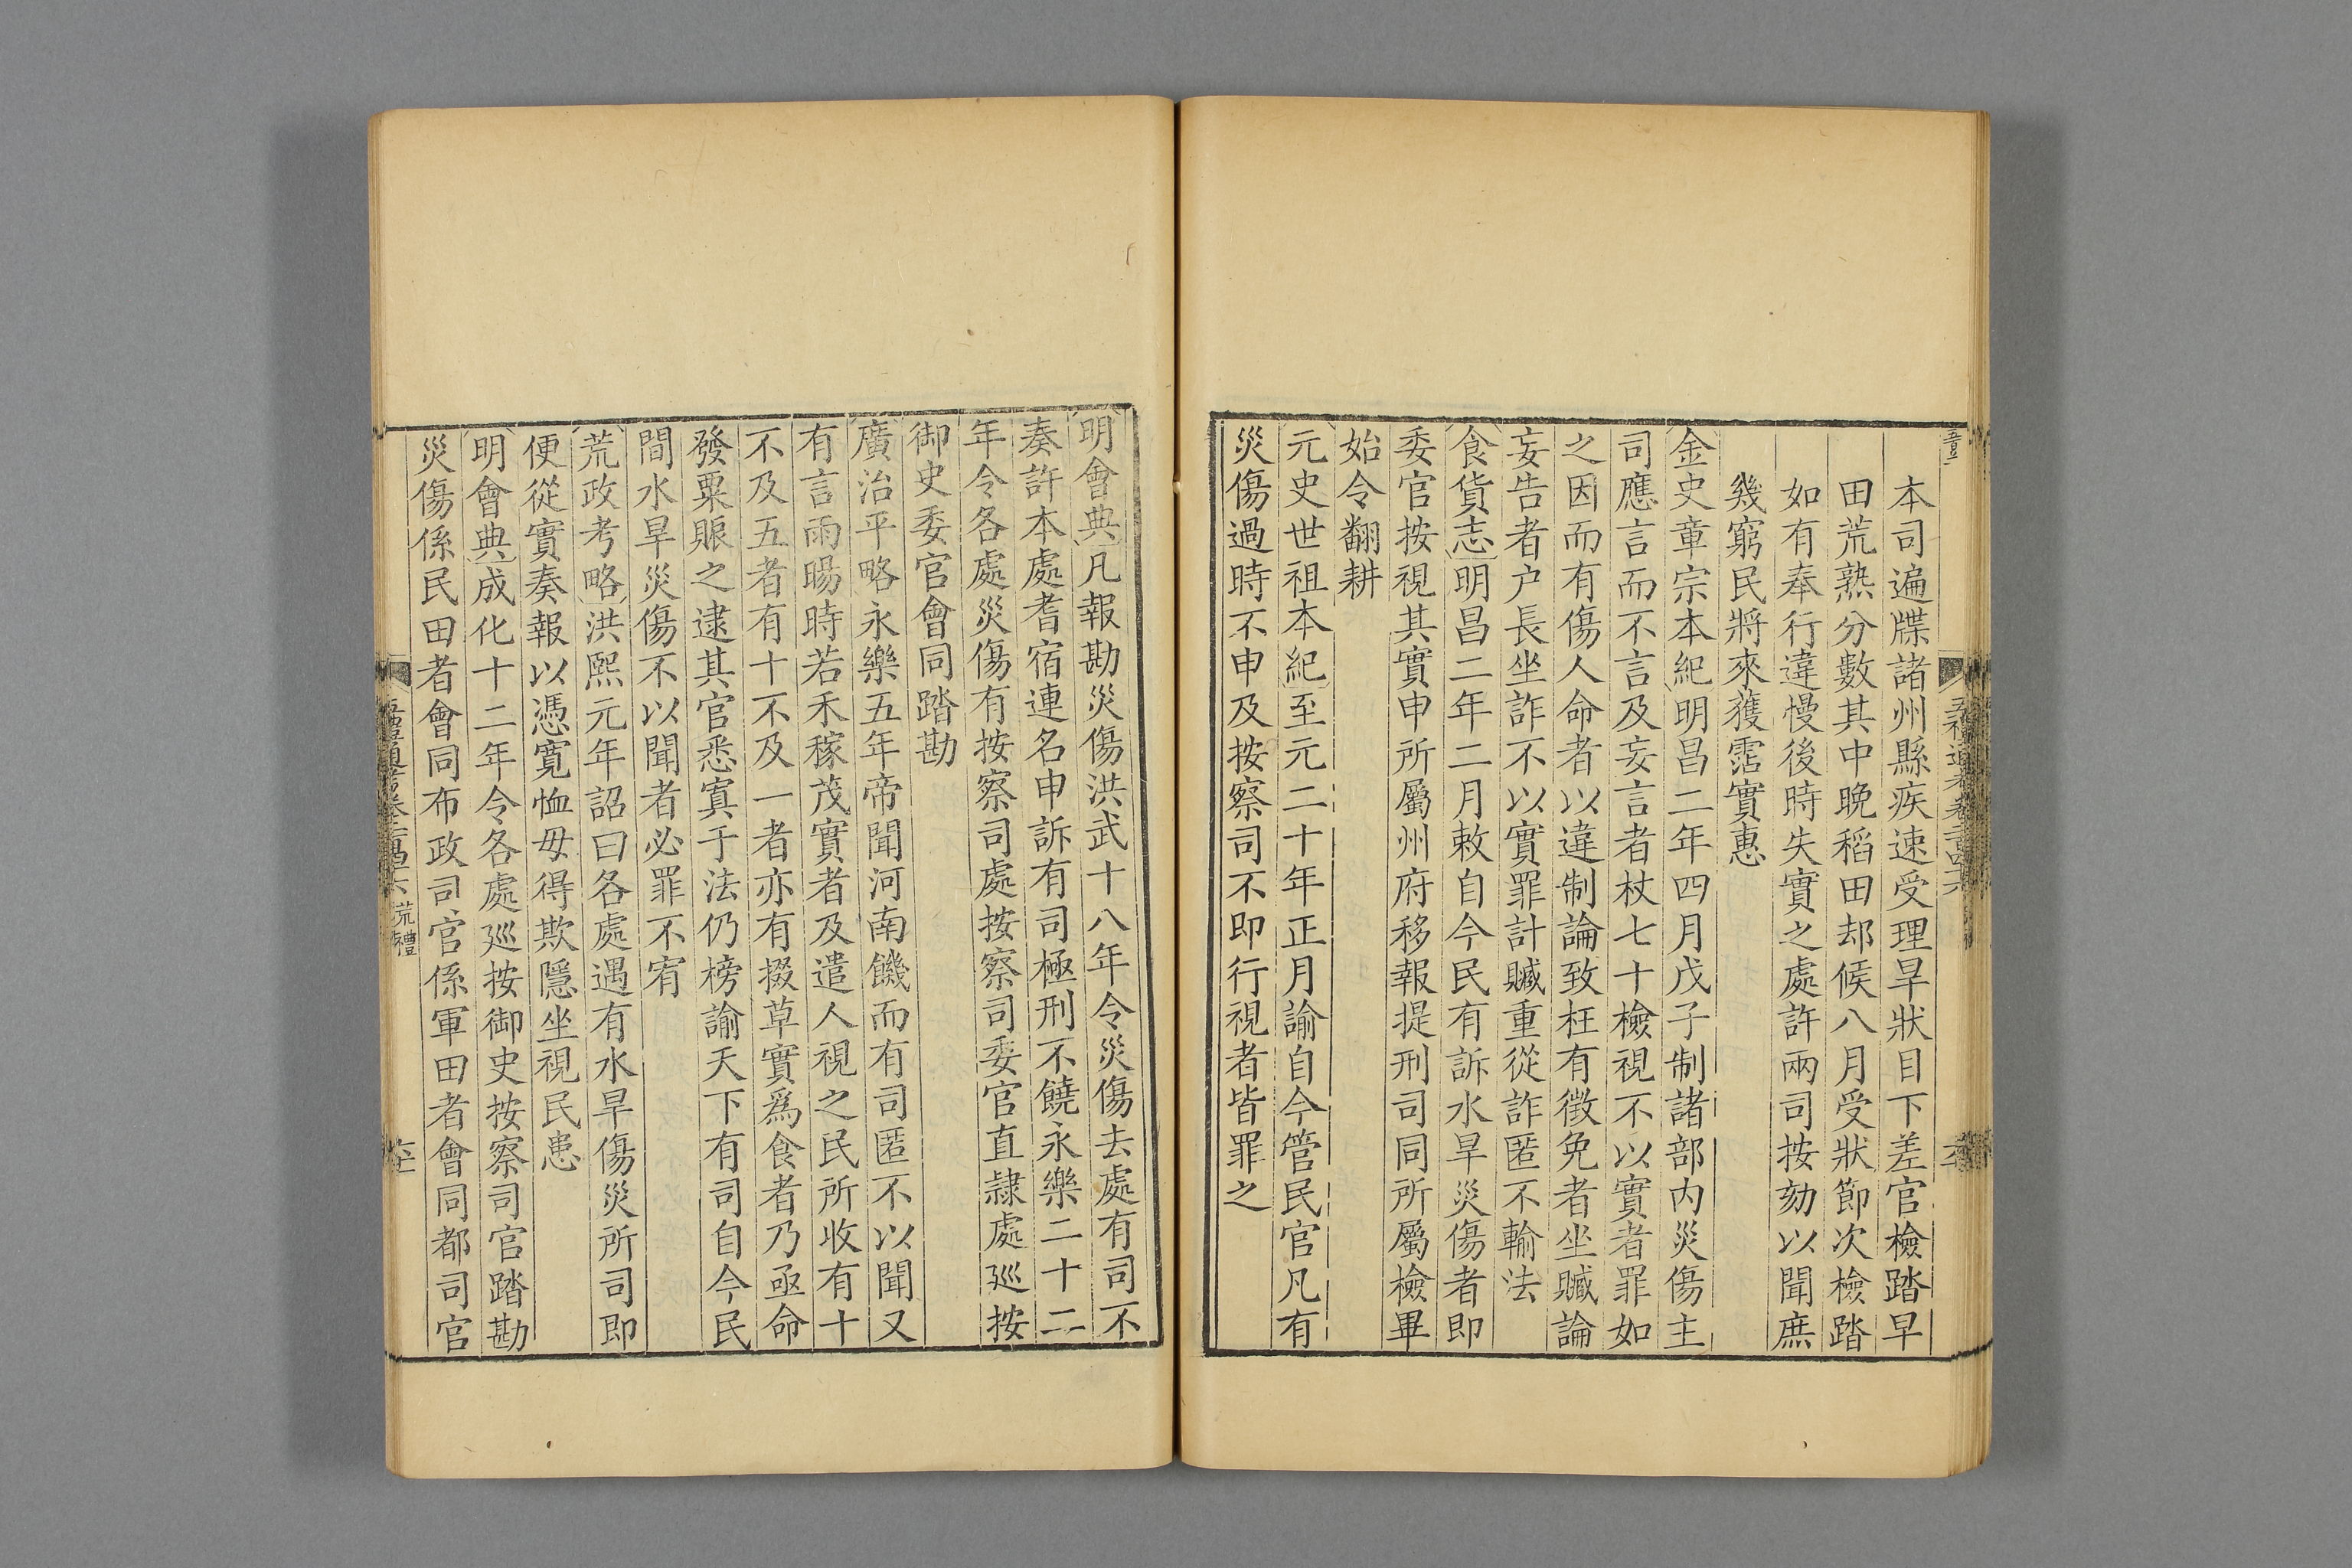 本司遍牒諸州縣疾速受理旱狀目下差官檢踏早
田荒熟分數其中晚稻田却候八月受狀節次檢踏
如有奉行違慢後時失實之處許兩司按劾以聞庶
幾窮民將來獲霑實惠
金史章宗本紀明昌二年四月戊子制諸部內災傷主
司應言而不言及妄言者杖七十檢視不以實者罪如
之因而有傷人命者以違制論致枉有徵免者坐贓論
妄告者户長坐詐不以實罪計贓重從詐匿不輸法
食貨志明昌二年二月敕自今民有訴水旱災傷者即
委官按視其實申所屬州府移報提刑司同所屬檢畢
始令翻耕
元史世祖本紀至元二十年正月諭自今管民官凡有
災傷過時不申及按察司不即行視者皆罪之
明會典凡報勘災傷洪武十八年令災傷去處有司不
奏許本處耆宿連名申訴有司極刑不饒永樂二十二
年令各處災傷有按察司處按察司委官直隷處廵按
御史委官會同踏勘
廣治平略永樂五年帝聞河南饑而有司匿不以聞又
有言雨暘時若禾稼茂實者及遣人視之民所收有十
不及五者有十不及一者亦有掇草實爲食者乃亟命
發粟賑之逮其官悉寘于法仍榜諭天下有司自今民
間水旱災傷不以聞者必罪不宥
荒政考略洪熙元年詔曰各處遇有水旱傷災所司即
便從實奏報以憑寬恤毋得欺隱坐視民患
明會典成化十二年令各處廵按御史按察司官踏勘
災傷係民田者會同布政司官係軍田者會同都司官
荒禮